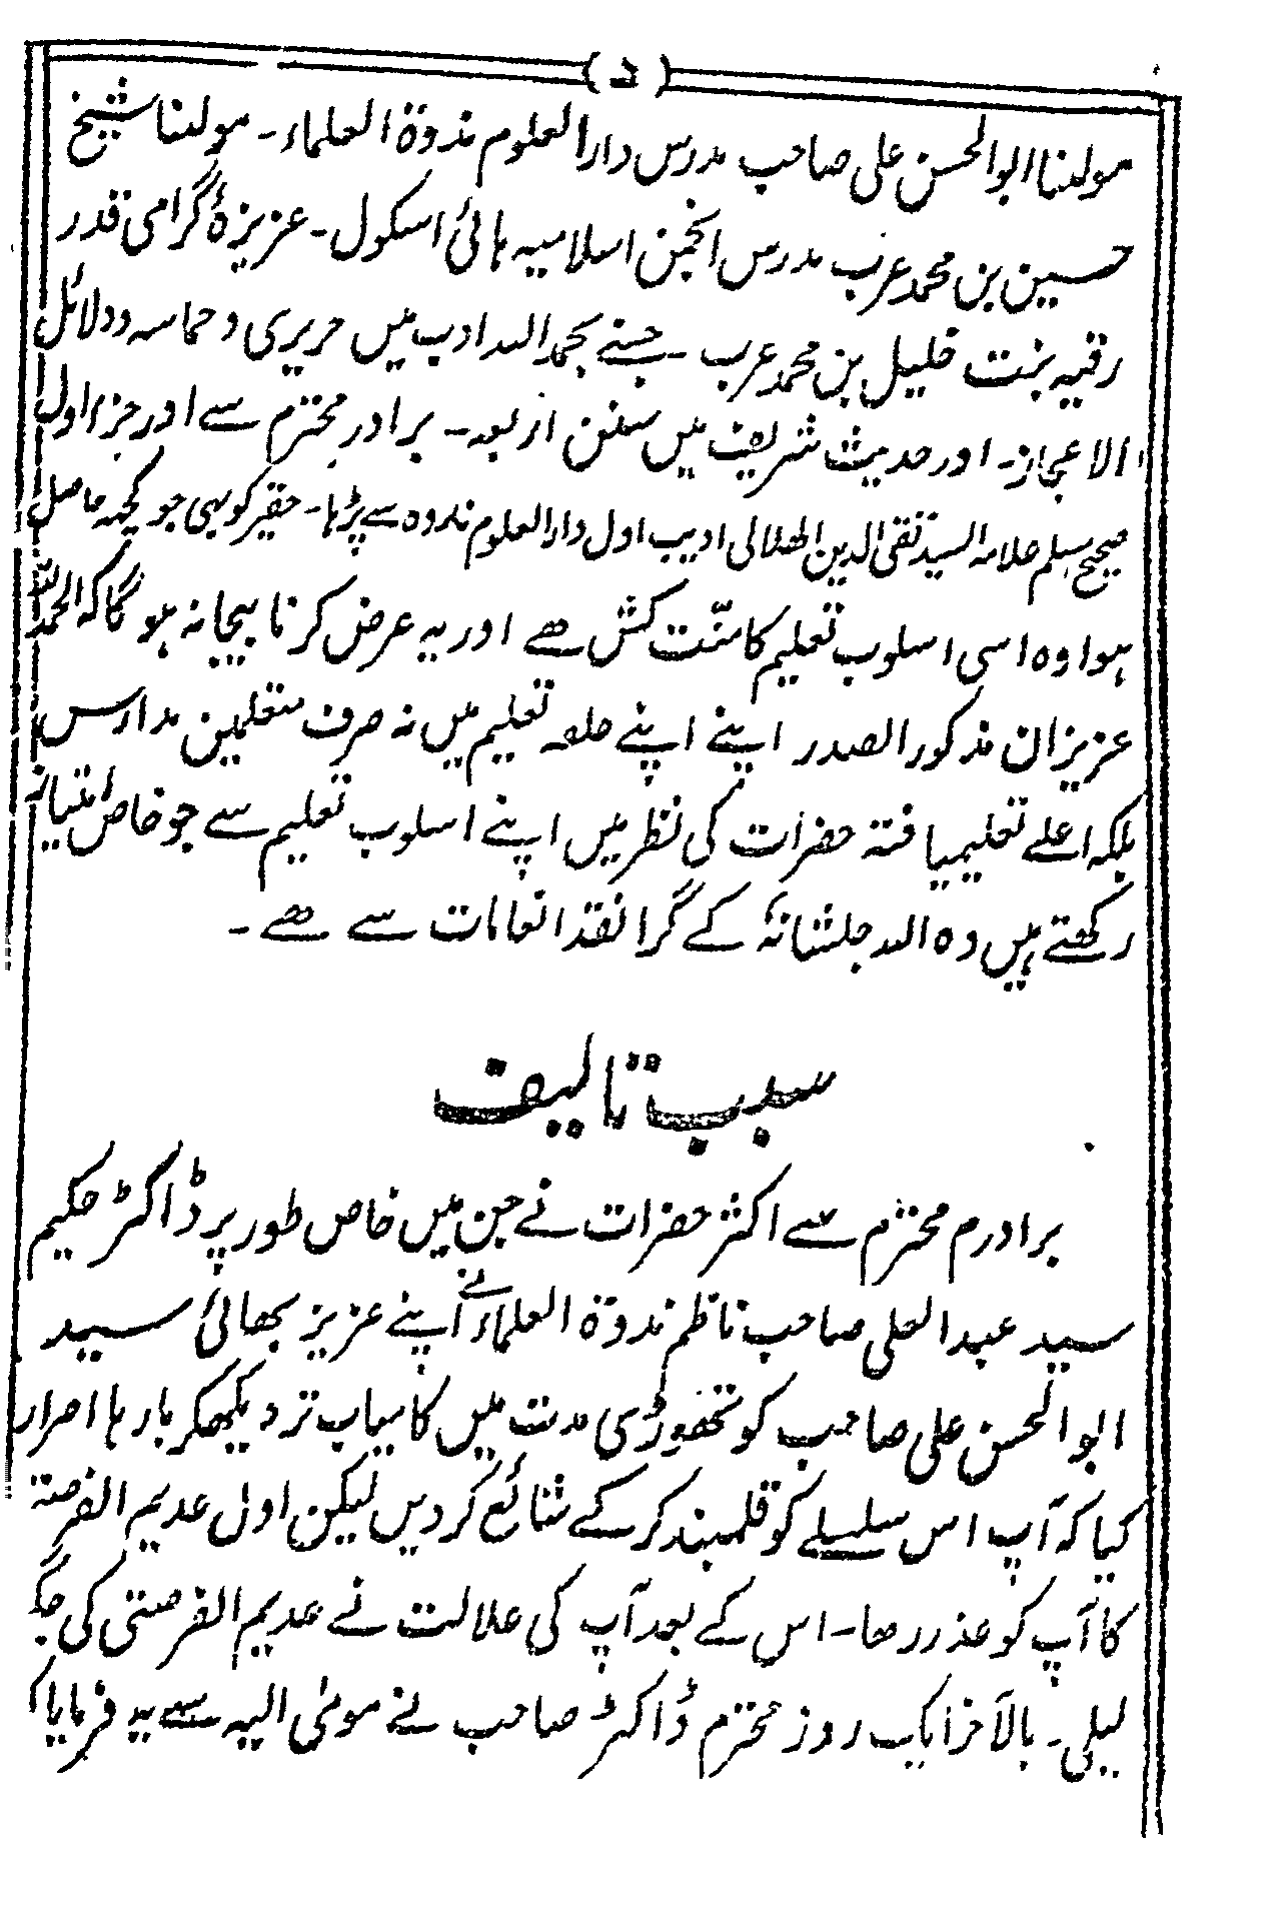 (د)
مولٰنا ابوالحسن علی صاحب مدرس دارالعلوم ندوۃ العلماء۔ مولٰنا شیخ
حسین بن محمد عرب مدرس انجمن اسلامیہ ہائی اسکول۔ عزیزۂ گرامی قدر
رقیہ بنت خلیل بن محمد عرب۔ جسنے بحمد اللہ ادب میں حریری و حماسہ و دلائل
الاعجاز۔ اور حدیث شریف میں سنن اربعہ۔ برادر محترم سے اور جزء اول
صحیح مسلم علامہ السید تقی الدین الھلالی ادیب اول دارالعلوم ندوہ سے پڑہا۔ حقیر کو بھی جو کچھ حاصل
ہوا وہ اسی اسلوب تعلیم کا منّت کش ھے اور یہ عرض کرنا بیجا نہ ہو گا کہ الحمد للہ
عزیزان مذکور الصدر اپنے اپنے حلقہ تعلیم میں نہ صرف متعلمین مدارس
بلکہ اعلے تعلیمیافتہ حضرات کی نظر میں اپنے اسلوب تعلیم سے جو خاص امتیاز
رکھتے ہیں وہ اللہ جلشانہٗ کے گرانقدر انعامات سے ھے۔
سبب تالیف
برادرم محترم سے اکثر حضرات نے جن میں خاص طور پر ڈاکٹر حکیم
سید عبد العلی صاحب ناظم ندوۃ العلماء نے اپنے عزیز بھائی سید
ابوالحسن علی صاحب کو تھوڑی مدت میں کامیاب تر دیکھکر بارہا اصرار
کیا کہ آپ اس سلسلے کو قلمبند کر کے شائع کردیں لیکن اول عدیم الفرصتی
کا آپ کو عذر رھا۔ اس کے بعد آپ کی علالت نے عدیم الفرصتی کی جگہ
لیلی۔ بالآخر ایک روز محترم ڈاکٹر صاحب نے مومٰی الیہ سے یہ فرمایا